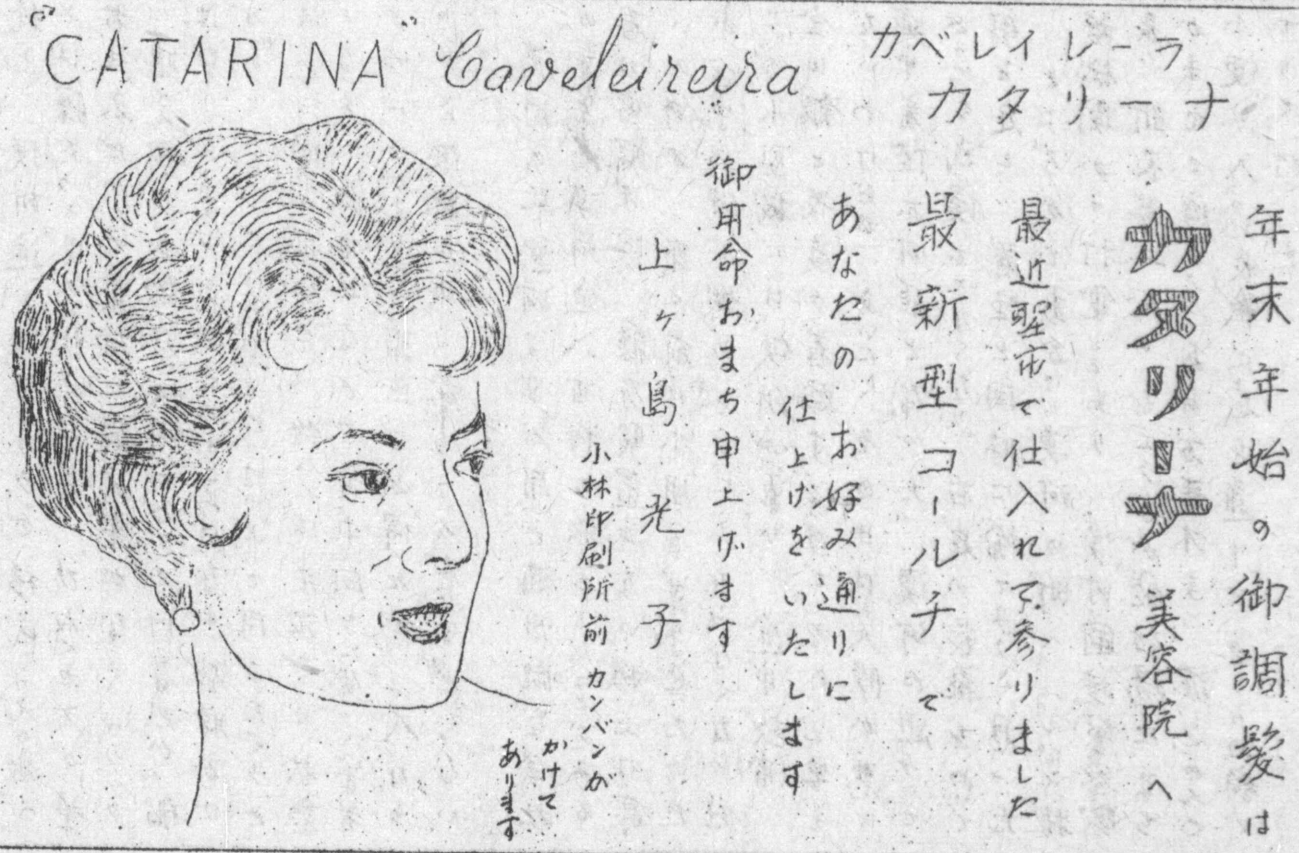 "CATARINA" Caveleireira
カベレイレーラ
カタリーナ
年末年始の御調髪は
カタリーナ 美容院へ
最近聖市で仕入れて参りました
最新型コールチで
あなたのお好み通りに
仕上げをいたします
御用命おまち申上げます
上ヶ島光子
小林印刷所前 カンバンが
かけて
あります